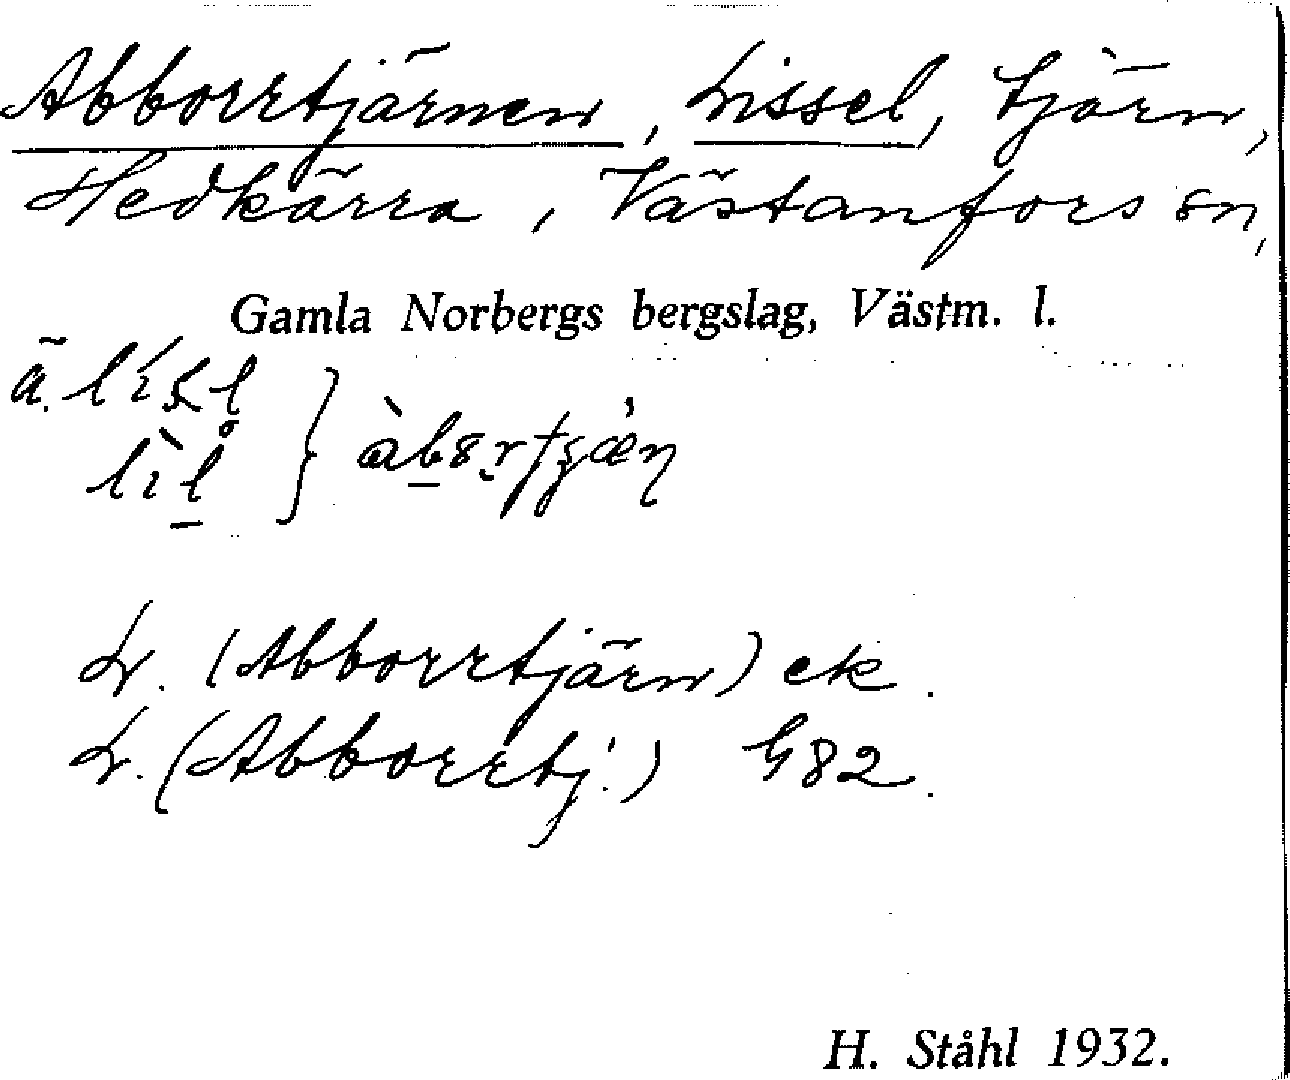 Abborrtjärnen, Lissel, tjärn,
Hedkärra, Västanfors sn,
Gamla Norbergs bergslag, Västm. l.
L. (Abborrtjärn) ek.
L. (Abborrtj.) G82.
H. Ståhl 1932.